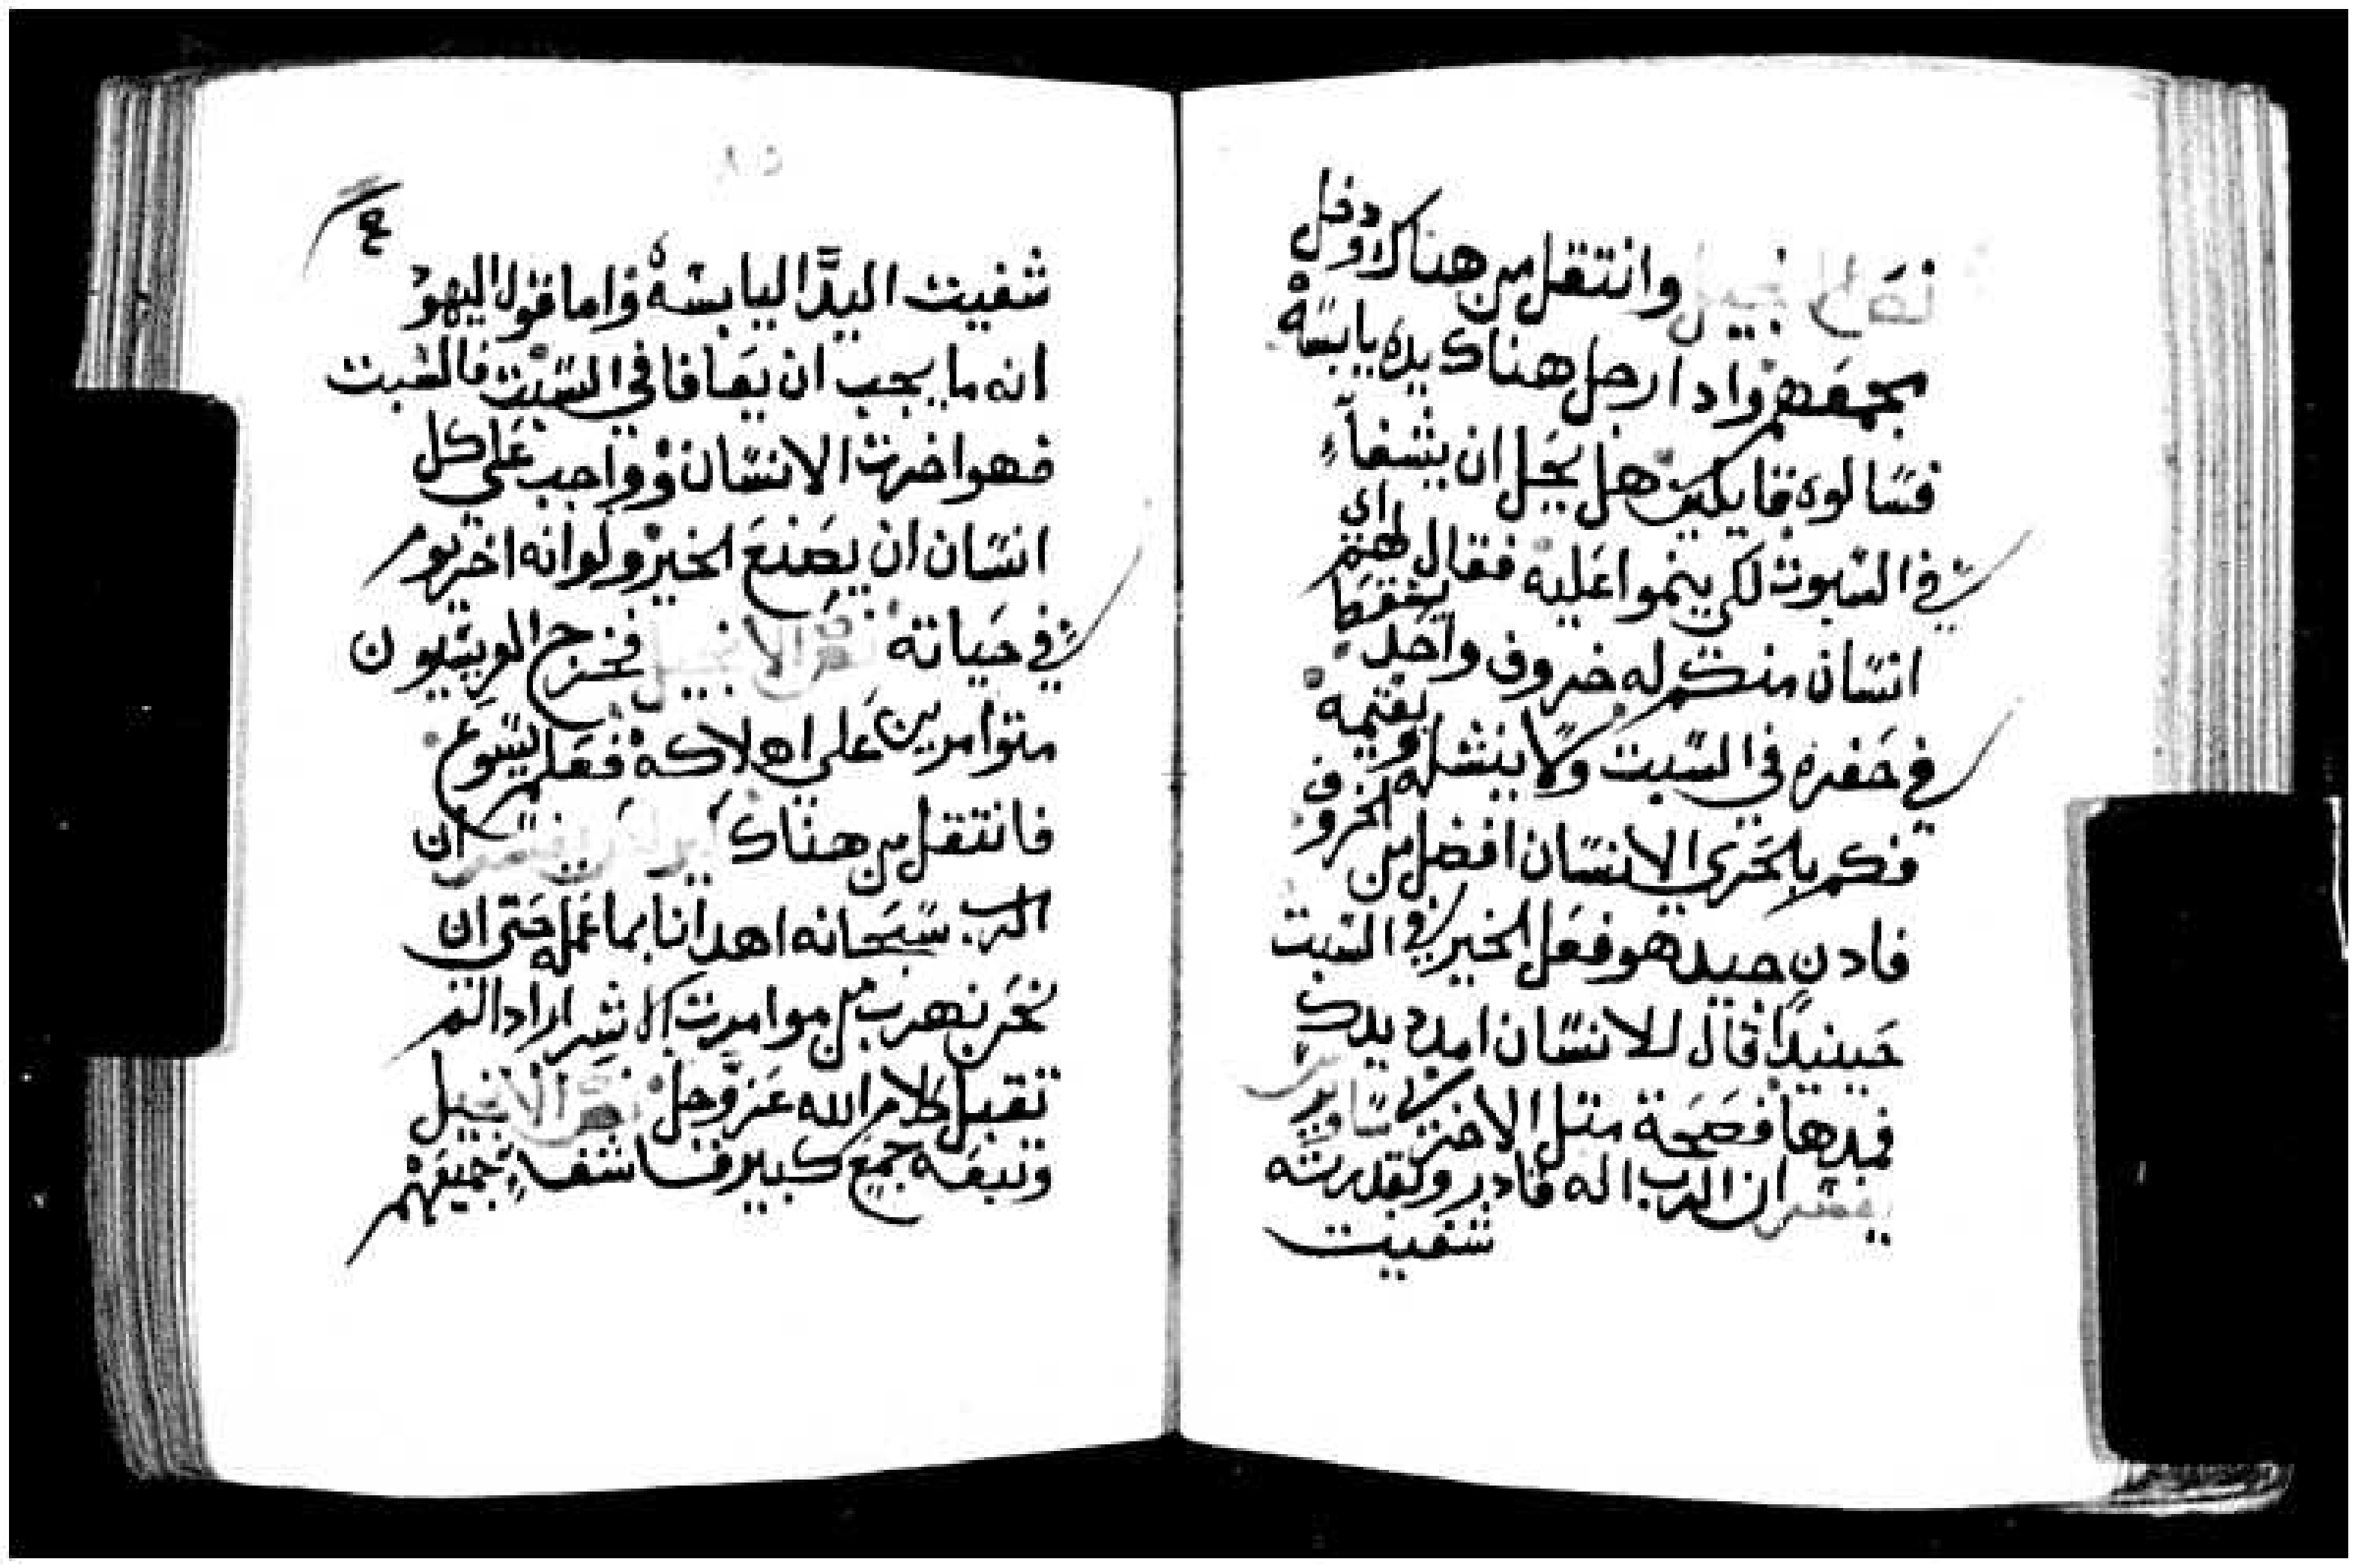 نص الانجيل وانتقل من هناك ودخل
مجمعهم وادا رجل هناك يده يابسه
فسالوه قايلين هل يحل ان يشفاء
في السبوت لكي ينموا عليه فقال لهم اي
انسان منكم له خروف واحد يسقط
في حفره في السبت ولا ينشله ويقيمه
فكم بلحري الانسان افضل من الخروف
فادن جيد هو فعل الخير في السبت
حينيدا قال للانسان امدد يدك
فمدها فصحة متل الاخرى
ان الرب اله قادر وبقدرته
شفيت
شفيت اليد اليابسه واما قول اليهود
انه ما يجب ان يعافا في السبت فالسبت
فهو اخرت الانسان وواجب على كل
انسان ان يصنع الخير ولو انه اخر يوم
في حياته نص الانجيل فخرج الفريسيون
متوامرين على اهلاكه فعلم يسوع
فانتقل من هناك ان
الرب سبحانه اهدانا بما عمله حتى ان
نحن نهرب من موامرت الاشرار ادا لم
تقبل كلام الله عز وجل نص الانجيل
وتبعه جمع كبير فاشفاء جميعهم